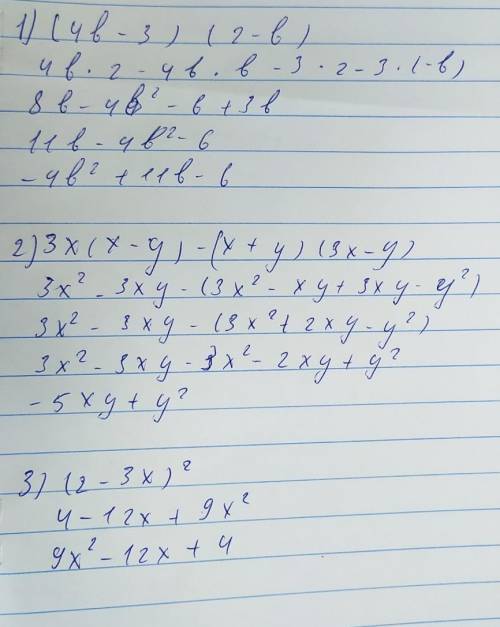 1) (4b - 3) (2 - b)
4b · 2 - 4b · b - 3 · 2 - 3 · (-b)
8b - 4b² - 6 + 3b
11b - 4b² - 6
-4b² + 11b - 6
2) 3x(x - y) - (x + y) (3x - y)
3x² - 3xy - (3x² - xy + 3xy - y²)
3x² - 3xy - (3x² + 2xy - y²)
3x² - 3xy - 3x² - 2xy + y²
- 5xy + y²
3) (2 - 3x)²
4 - 12x + 9x²
9x² - 12x + 4